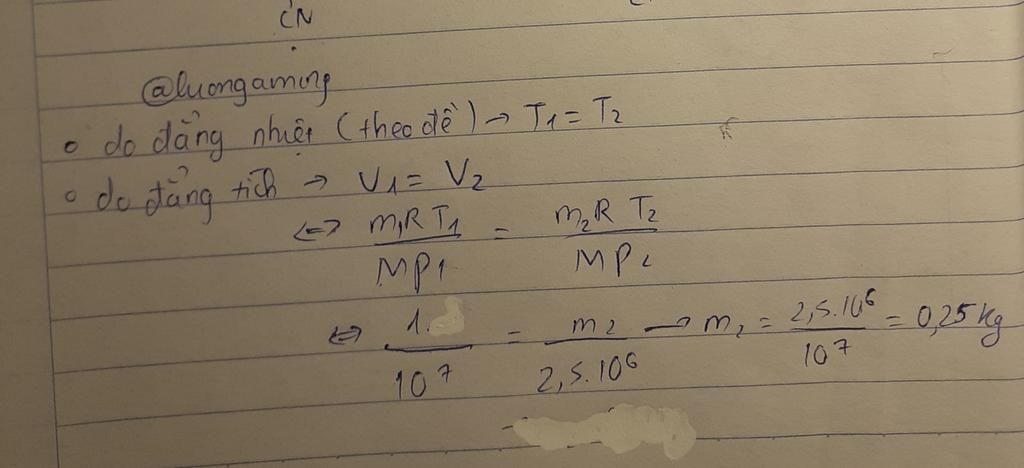 CN
@luongaming
o do đẳng nhiệt (theo đề) → T1 = T2
o do đẳng tích → V1 = V2
<=> m1RT1/MP1 = m2RT2/MP2
<=> 1./10^7 = m2/2,5.10^6 → m2 = 2,5.10^6/10^7 = 0,25 kg